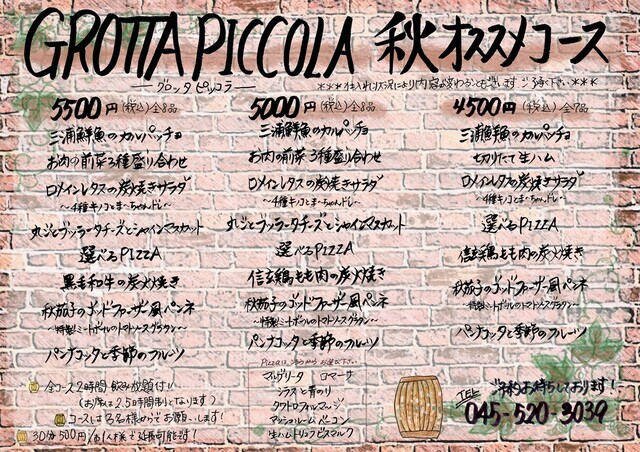 GROTTA PICCOLA 秋オススメコース
—グロッタピッコラ—
***仕入れ状況により内容が変わることもございます ご了承下さい***
5500円(税込)全8品
三浦鮮魚のカルパッチョ
お肉の前菜3種盛り合わせ
ロメインレタスの炭焼きサラダ
丸ごとブッラータチーズとシャインマスカット
選べるPIZZA
黒毛和牛の炭火焼き
秋茄子のゴッドファーザー風ペンネ
~特製ミートボールのトマトソースグラタン~
パンナコッタと季節のフルーツ
5000円(税込)全8品
三浦鮮魚のカルパッチョ
お肉の前菜3種盛り合わせ
ロメインレタスの炭焼きサラダ
丸ごとブッラータチーズとシャインマスカット
選べるPIZZA
信玄鶏もも肉の炭火焼き
秋茄子のゴッドファーザー風ペンネ
~特製ミートボールのトマトソースグラタン~
パンナコッタと季節のフルーツ
PIZZAは下記からお選び下さい
マルゲリータ ロマーナ
シラスと青のり
クワトロフォルマッジ
マッシュルームベーコン
生ハムトリュフビスマルク
4500円(税込)全7品
三浦鮮魚のカルパッチョ
切りたて生ハム
ロメインレタスの炭焼きサラダ
選べるPIZZA
信玄鶏もも肉の炭火焼き
秋茄子のゴッドファーザー風ペンネ
~特製ミートボールのトマトソースグラタン~
パンナコッタと季節のフルーツ
全コース2時間飲み放題付!!
(お席は2.5時間制となります)
コースは3名様からでお願いします!
30分500円/お1人様で延長可能です!
ご予約お待ちしております!
TEL 045-520-3039